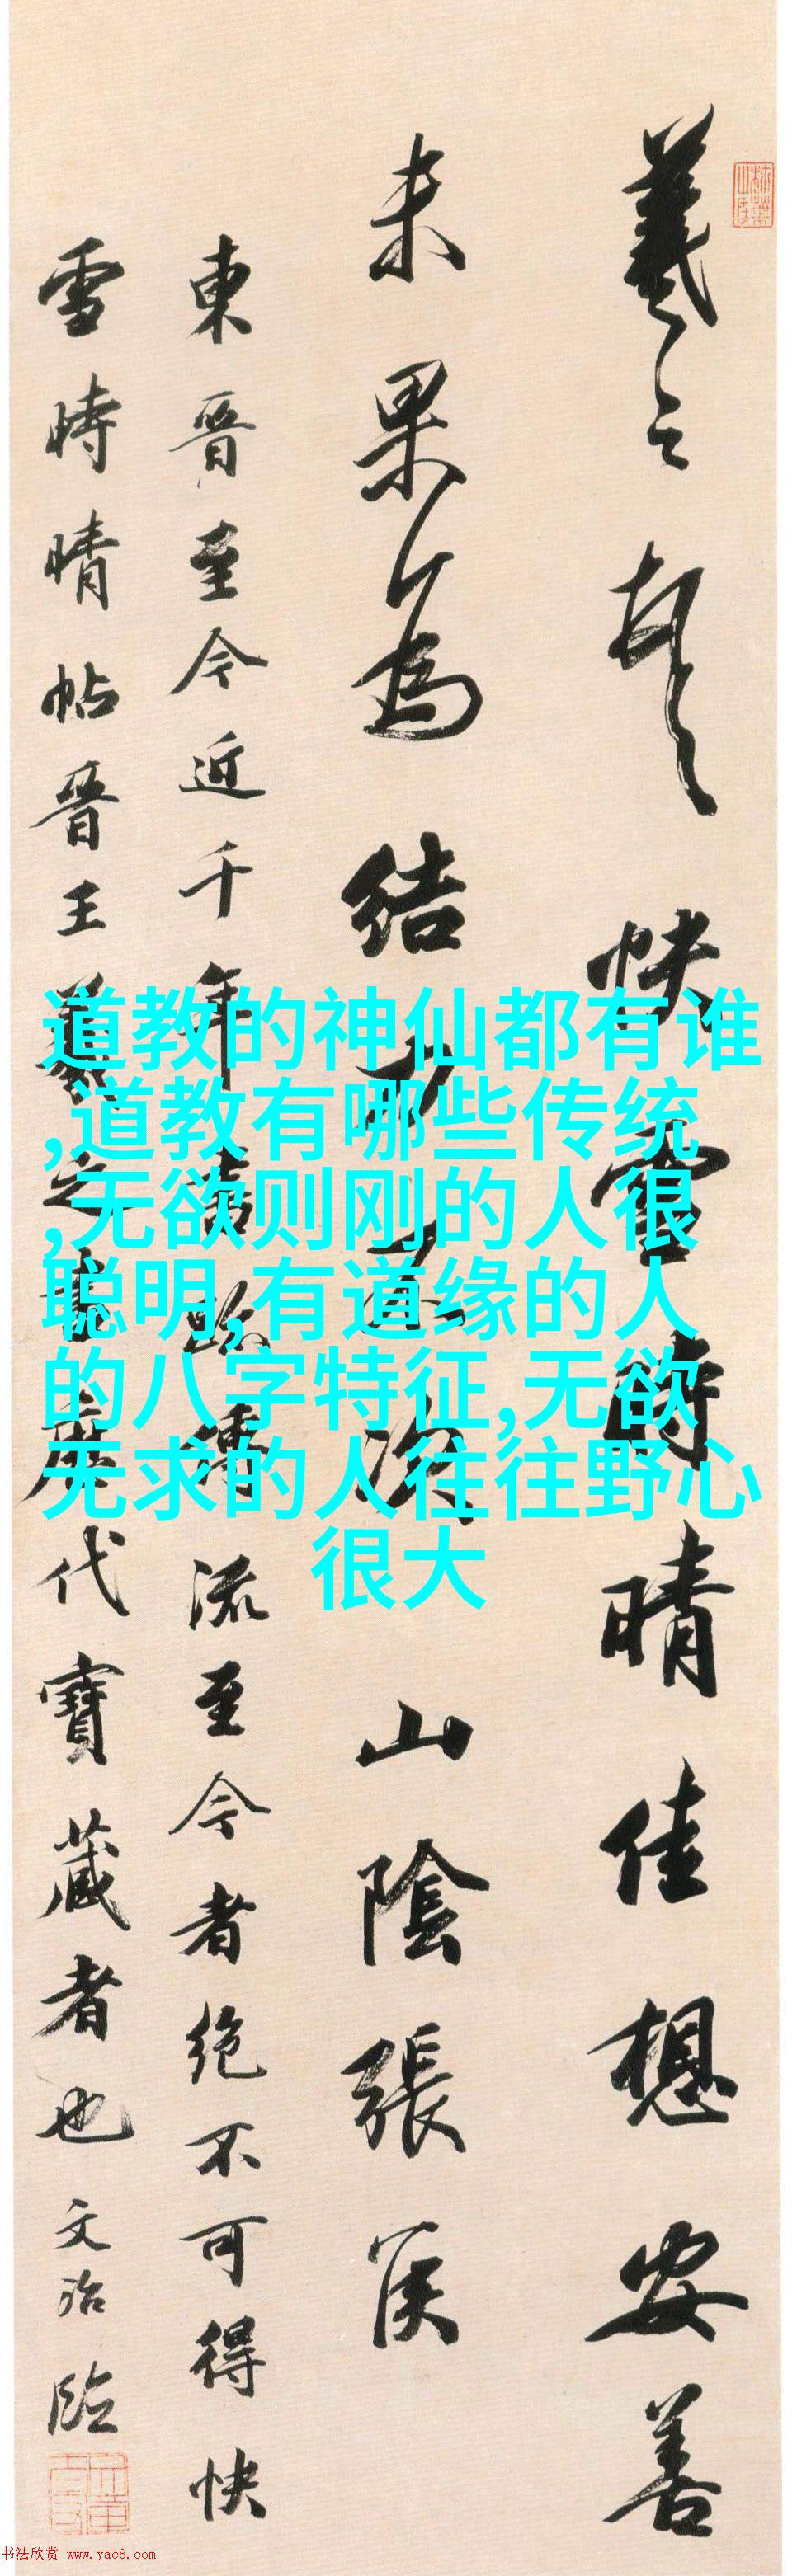 羲之頓首快雪時晴佳想安善
未果為結力不次山陰張侯
東晉至今近千年書跡傳流至今者絕不可得快
雪時晴帖晉王羲之書歷代寶藏者也文治臨
道教的神仙都有谁
,道教有哪些传统
,无欲则刚的人很
聪明,有道缘的人
的八字特征,无欲
无求的人往往野心
很大
书法欣赏 www.yac8.com